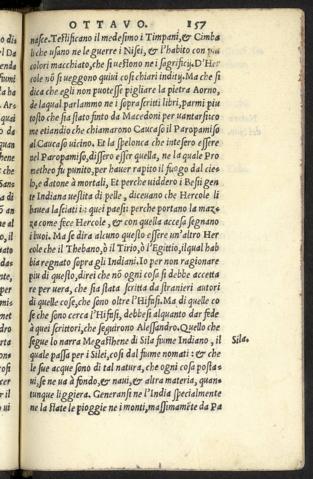 OTTAVO. 157
nasce. Testificano il medesimo i Timpani, & Cimba
li che usano ne le guerre i Nisei, & l'habito con piu
colori macchiato, che si vestono ne i sagrificij. D'Her
cole nõ si veggono quiui cosi chiari indity. Ma che si
dica che egli non puotesse pigliare la pietra Aorno,
de laqual parlammo ne i soprascritti libri, parmi piu
tosto che sia stato finto da Macedoni per vantarsi co
me etiandio che chiamarono Caucaso il Paropamiso
al Caucaso vicino. Et la spelonca che intesero essere
nel Paropamiso, dissero esser quella, ne la quale Pro
metheo fu punito, per hauer rapito il fuogo dal cie-
lo, e datone à mortali, Et perche viddero i Besij gen
te Indiana vestita di pelle, diceuano che Hercole li
hauea lasciati iui quei paesi perche portano la maz-
za come fece Hercole, & con quella accesa segnano
i buoi. Ma se dira alcuno questo essere un'altro Her
cole che il Thebano, ò il Tirio, ò l'Egittio, ilqual hab
bia regnato sopra gli Indiani. Io per non ragionare
piu di questo, direi che nõ ogni cosa si debbe accetta
re per uera, che sia stata scritta da stranieri autori
di quelle cose, che sono oltre l'Hifasi. Ma di quelle co
se che sono cerca l'Hifasi, debbesi alquanto dar fede
à quei scrittori, che seguirono Alessandro. Quello che
segue lo narra Megasthene di Sila fiume Indiano, il
Sila.
quale passa per i Silei, cosi dal fiume nomati: & che
le sue acque sono di tal natura, che ogni cosa posta-
ui, se ne ua à fondo, & naui, & altra materia, quan-
tunque liggiera. Generansi ne l'India specialmente
ne la state le pioggie ne i monti, massimamẽte da Pa